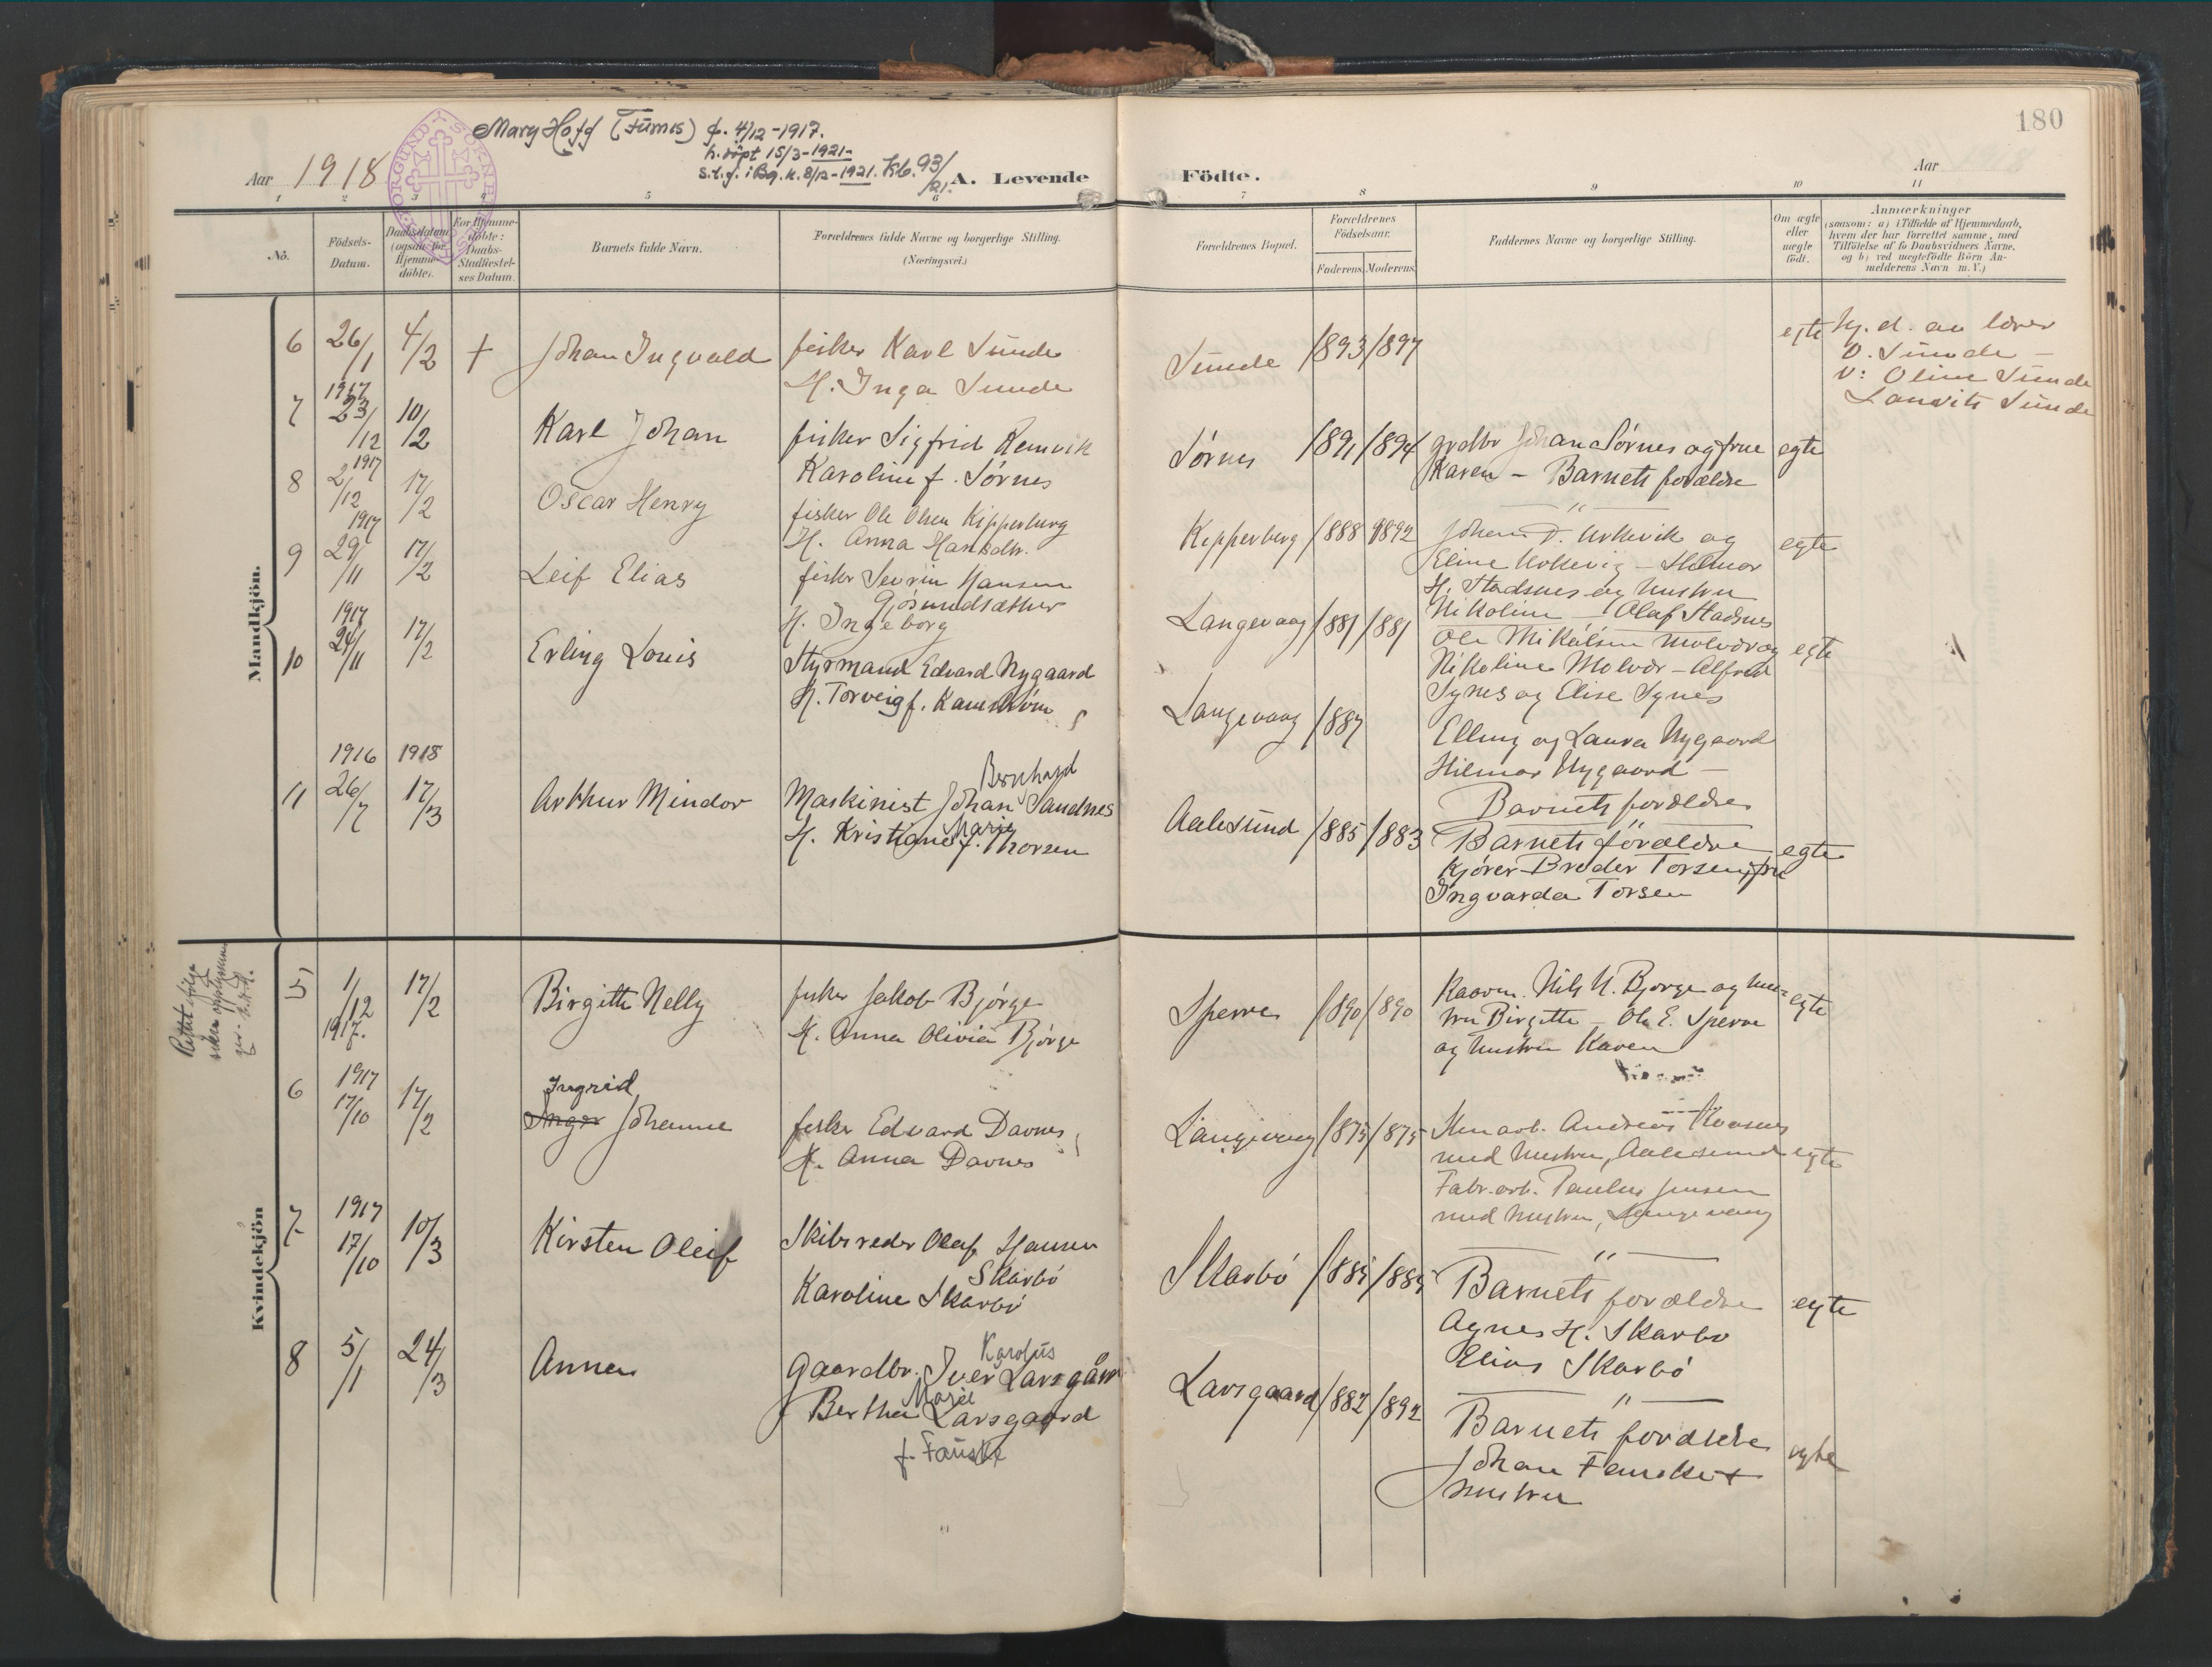 180
Mary Hoff (Furnes) f. 4/12-1917.
h. döpt 15/3-1921-
s.t.f. i Bg. k. 8/12-1921. Kb. 93/21.
Aar 1918
A. Levende Födte.
Aar
1 2 3 4 5 6 7 8 9 10 11
No.
Födsels-Datum.
Daabsdatum (ogsaa for Hjemmedöbte).
For Hjemmedöbte: Daabs-Stadfæstelses Datum.
Barnets fulde Navn.
Forældrenes fulde Navne og borgerlige Stilling.
(Næringsvei.)
Forældrenes Bopæl.
Forældrenes Födselsaar.
Faderens. Moderens.
Faddernes Navne og borgerlige Stilling.
Om ægte eller uegte födt.
Anmærkninger
(saasom: a) i Tilfælde af Hjemmedaab, hvem der har forrettet samme, med Tilföielse af to Daabsvidners Navne, og b) ved uegtefödte Börn Anmelderens Navn m. V.)
Mandkjön.
6 26/1 4/2 + Johan Ingvald
fisker Karl Sunde
H. Inga Sunde
Sunde 1893 1897
egte
Hj. d. av lærer
O. Sunde –
V: Oline Sunde
Lauritz Sunde
7 1917 23/12 10/2 Karl Johan
fisker Sigfrid Remvik
Karoline f. Sørnes
Sørnes 1891 1894
grdbr Johan Sørnes og frue
Karen – Barnets forældre
egte
8 1917 2/12 17/2 Oscar Henry
fisker Ole Olsen Kipperberg
H. Anna Hansdtr.
Kipperberg 1888 1892
Johan D. Urkevik og
egte
9 1917 29/11 17/2 Leif Elias
fisker Sevrin Hansen
Gjøsundsæther
H. Ingeborg
Langevaag 1881 1881
H. Stadsnes og hustru
Nikoline – Olaf Stadsnes
Ole Mikalsen Molvær og
Nikoline Molvær – Alfred
Synes og Elise Synes
egte
10 1917 24/11 17/2 Erling Louis
Styrmand Edvard Nygaard
H. Torveig f.
Langevaag 1887
Elling og Laura Nygaard
Hilmar Nygaard –
Barnets forældre
11 1916 26/7 1918 17/3 Arthur Mindor
Bernhard
Maskinist Johan Sandnes
Marie
H. Kristiane f. Thorsen
Aalesund 1885 1883
Barnets forældre
Kjører Broder Torsen, fru
Ingvarda Torsen
egte
Rettet ifølge
Kvindekjön
5 1/12 1917. 17/2 Birgitte Nelly
fisker Jakob Bjørge
H. Anna Olivia Bjørge
Sperre 1890 1890
Nils N. Bjørge og hus-
tru Birgitte – Ole E. Sperre
og hustru Karen
egte
6 1917 17/10 17/2
Ingrid
Inger Johanne
fisker Edvard Davnes
H. Anna Davnes
Langevaag 1875 1875
med hustru, Aalesund
Fabr.arb. Paulus Jensen
med hustru, Langevaag
egte
7 1917 17/10 10/3 Kirsten Oleif
Skibsreder Olaf Hansen
Skarbö
Karoline Skarbö
Skarbö 1885 1885
Barnets forældre
Agnes H. Skarbö
Elias Skarbö
egte
8 5/1 24/3 Anna
Karolus
Gaardbr. Iver Larsgård
Marie
Bertha Larsgaard
f. Fauske
Larsgaard 1882 1892
Barnets forældre
Johan Fauske +
hustru
egte